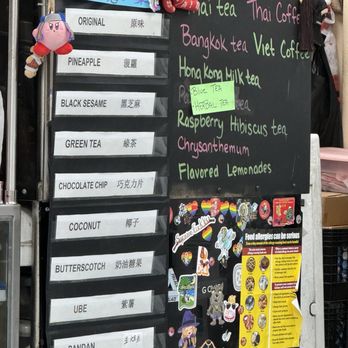 ORIGINAL 原味
PINEAPPLE 菠蘿
BLACK SESAME 黑芝麻
GREEN TEA 綠茶
CHOCOLATE CHIP 巧克力片
COCONUT 椰子
BUTTERSCOTCH 奶油糖果
UBE 紫薯
PANDAN
Thai tea Thai Coffee
Bangkok tea Viet Coffee
Hong Kong Milk tea
BLUE TEA
HERBAL TEA
tea
Raspberry Hibiscus tea
Chrysanthemum
Flavored Lemonades
Food allergies can be serious